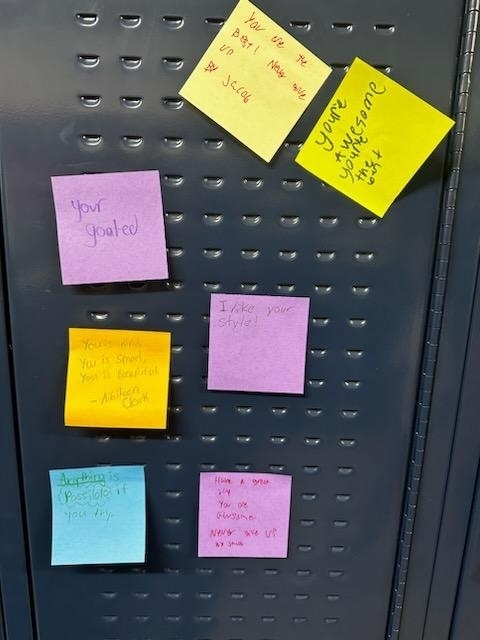 You are the
Best! Never give
up
By Jacob
you're
Awesome
you're
the
best
Your
goated
I like your
style!
You is kind,
You is smart,
You is Beautiful.
- Aibileen
Clark
Anything is
(Possible) if
you try.
Have a great
day
You are
awesome
Never give up